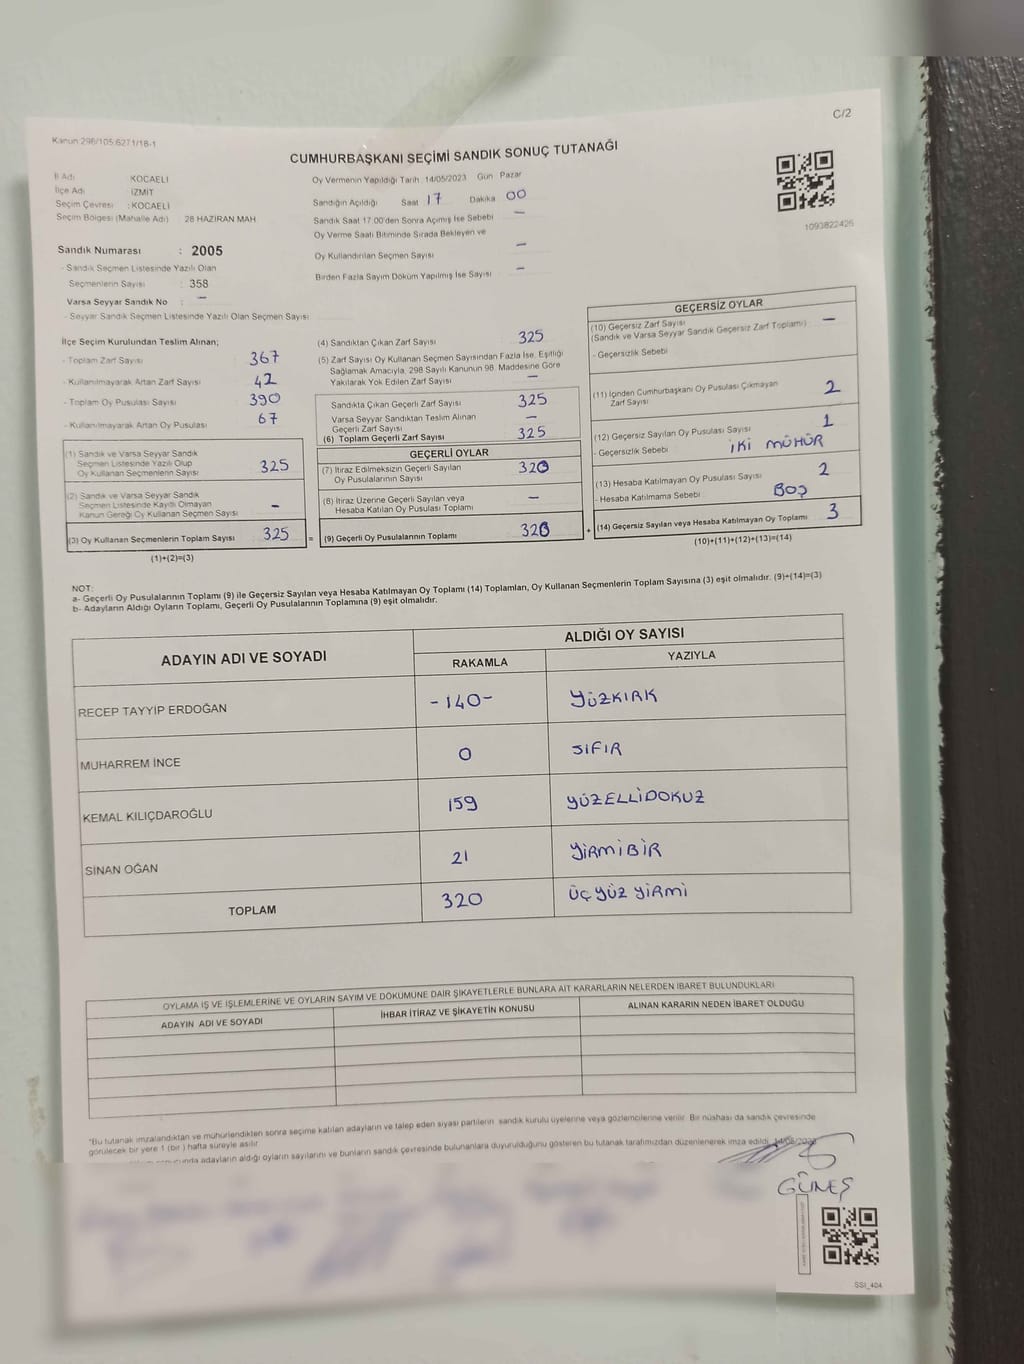 C/2
Kanun 298/105;6271/18-1
CUMHURBAŞKANI SEÇİMİ SANDIK SONUÇ TUTANAĞI
İl Adı KOCAELİ
İlçe Adı İZMİT
Seçim Çevresi : KOCAELİ
Seçim Bölgesi (Mahalle Adı) : 28 HAZİRAN MAH
Sandık Numarası : 2005
- Sandık Seçmen Listesinde Yazılı Olan
Seçmenlerin Sayısı : 358
Varsa Seyyar Sandık No : -
- Seyyar Sandık Seçmen Listesinde Yazılı Olan Seçmen Sayısı
Oy Vermenin Yapıldığı Tarih 14/05/2023 Gün Pazar
Sandığın Açıldığı Saat 17 Dakika 00
Sandık Saat 17:00'den Sonra Açılmış İse Sebebi -
Oy Verme Saati Bitiminde Sırada Bekleyen ve
Oy Kullandırılan Seçmen Sayısı -
Birden Fazla Sayım Döküm Yapılmış İse Sayısı -
1093822426
İlçe Seçim Kurulundan Teslim Alınan;
- Toplam Zarf Sayısı 367
- Kullanılmayarak Artan Zarf Sayısı 42
- Toplam Oy Pusulası Sayısı 390
- Kullanılmayarak Artan Oy Pusulası 67
(1) Sandık ve Varsa Seyyar Sandık
Seçmen Listesinde Yazılı Olup
Oy Kullanan Seçmenlerin Sayısı 325
(2) Sandık ve Varsa Seyyar Sandık
Seçmen Listesinde Kayıtlı Olmayan
Kanun Gereği Oy Kullanan Seçmen Sayısı -
(3) Oy Kullanan Seçmenlerin Toplam Sayısı 325 =
(1)+(2)=(3)
(4) Sandıktan Çıkan Zarf Sayısı 325
(5) Zarf Sayısı Oy Kullanan Seçmen Sayısından Fazla İse, Eşitliği
Sağlamak Amacıyla, 298 Sayılı Kanunun 98. Maddesine Göre
Yakılarak Yok Edilen Zarf Sayısı -
Sandıkta Çıkan Geçerli Zarf Sayısı 325
Varsa Seyyar Sandıktan Teslim Alınan
Geçerli Zarf Sayısı -
(6) Toplam Geçerli Zarf Sayısı 325
GEÇERLİ OYLAR
(7) İtiraz Edilmeksizin Geçerli Sayılan
Oy Pusulalarının Sayısı 320
(8) İtiraz Üzerine Geçerli Sayılan veya
Hesaba Katılan Oy Pusulası Toplamı -
(9) Geçerli Oy Pusulalarının Toplamı 320 +
GEÇERSİZ OYLAR
(10) Geçersiz Zarf Sayısı -
(Sandık ve Varsa Seyyar Sandık Geçersiz Zarf Toplamı)
- Geçersizlik Sebebi
(11) İçinden Cumhurbaşkanı Oy Pusulası Çıkmayan
Zarf Sayısı 2
(12) Geçersiz Sayılan Oy Pusulası Sayısı 1
- Geçersizlik Sebebi İKİ MÜHÜR
(13) Hesaba Katılmayan Oy Pusulası Sayısı 2
- Hesaba Katılmama Sebebi BOŞ
(14) Geçersiz Sayılan veya Hesaba Katılmayan Oy Toplamı 3
(10)+(11)+(12)+(13)=(14)
NOT:
a- Geçerli Oy Pusulalarının Toplamı (9) ile Geçersiz Sayılan veya Hesaba Katılmayan Oy Toplamı (14) Toplamları, Oy Kullanan Seçmenlerin Toplam Sayısına (3) eşit olmalıdır. (9)+(14)=(3)
b- Adayların Aldığı Oyların Toplamı, Geçerli Oy Pusulalarının Toplamına (9) eşit olmalıdır.
ADAYIN ADI VE SOYADI ALDIĞI OY SAYISI
RAKAMLA YAZIYLA
RECEP TAYYİP ERDOĞAN -140- YÜZKIRK
MUHARREM İNCE 0 SIFIR
KEMAL KILIÇDAROĞLU 159 YÜZELLİDOKUZ
SİNAN OĞAN 21 YİRMİBİR
TOPLAM 320 ÜÇ YÜZ YİRMİ
OYLAMA İŞ VE İŞLEMLERİNE VE OYLARIN SAYIM VE DÖKÜMÜNE DAİR ŞİKAYETLERLE BUNLARA AİT KARARLARIN NELERDEN İBARET BULUNDUKLARI
ADAYIN ADI VE SOYADI İHBAR İTİRAZ VE ŞİKAYETİN KONUSU ALINAN KARARIN NEDEN İBARET OLDUĞU
"Bu tutanak imzalandıktan ve mühürlendikten sonra seçime katılan adayların ve talep eden siyasi partilerin sandık kurulu üyelerine veya gözlemcilerine verilir. Bir nüshası da sandık çevresinde
görülecek bir yere 1 (bir) hafta süreyle asılır
adayların aldığı oyların sayılarını ve bunların sandık çevresinde bulunanlara duyurulduğunu gösteren bu tutanak tarafımızdan düzenlenerek imza edildi.
GÜNEŞ
SSI_404